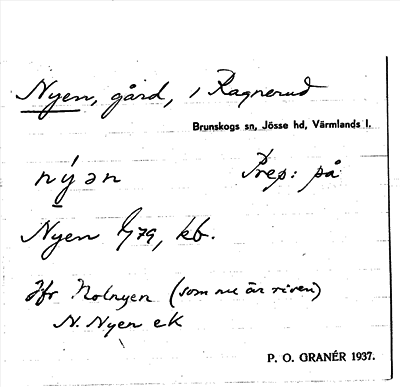 Nyen, gård, i Ragnerud
Brunskogs sn, Jösse hd, Värmlands l.
nýən Prep: på
Nyen 1/79, kb.
Jfr Nolnyen (som nu är riven)
N. Nyen ek
P. O. GRANÉR 1937.